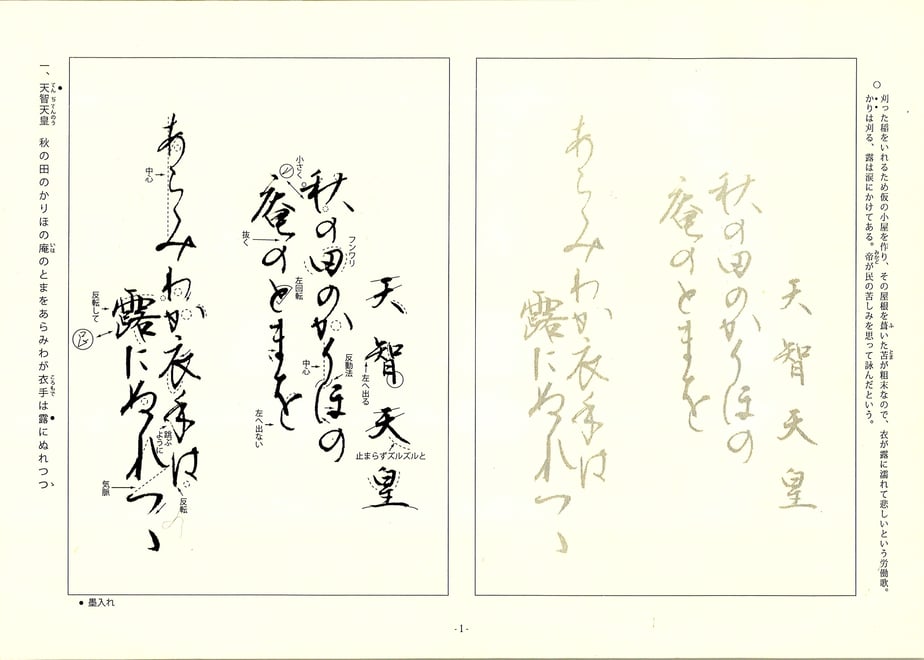 ○ 刈った稲をいれるため仮の小屋を作り、その屋根を葺いた苫が粗末なので、衣が露に濡れて悲しいという労働歌。
かりは刈る、露は涙にかけてある。帝が民の苦しみを思って詠んだという。
天智天皇
秋の田のかりほの
庵のとまを
あらみわか衣手は
露にぬれつゝ
天智天皇
秋の田のかりほの
庵のとまを
あらみわか衣手は
露にぬれつゝ
左へ出る
止まらずズルズルと
フンワリ
反動法
中心
小さく
左回転
抜く
左へ出ない
中心
跳ぶように
反転
反転して
気脈
一、天智天皇 秋の田のかりほの庵のとまをあらみわが衣手は露にぬれつゝ
● 墨入れ
- 1 -